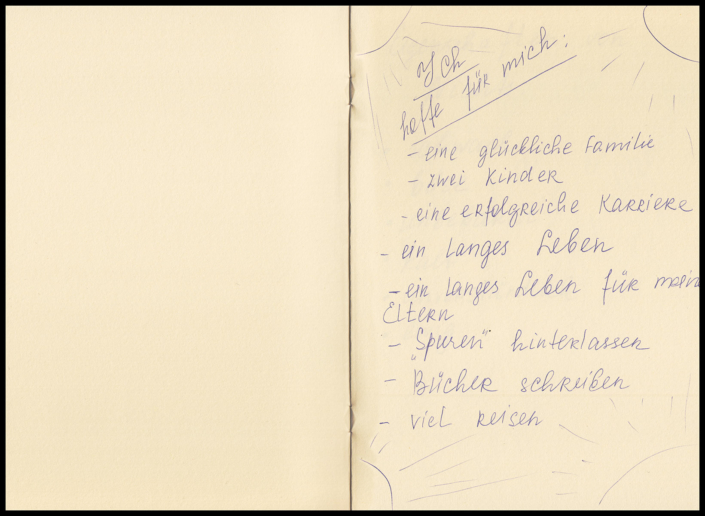 Ich
hoffe für mich:
- eine glückliche Familie
- zwei Kinder
- eine erfolgreiche Karriere
- ein langes Leben
- ein langes Leben für mein
Eltern
- „Spuren" hinterlassen
- Bücher schreiben
- viel reisen